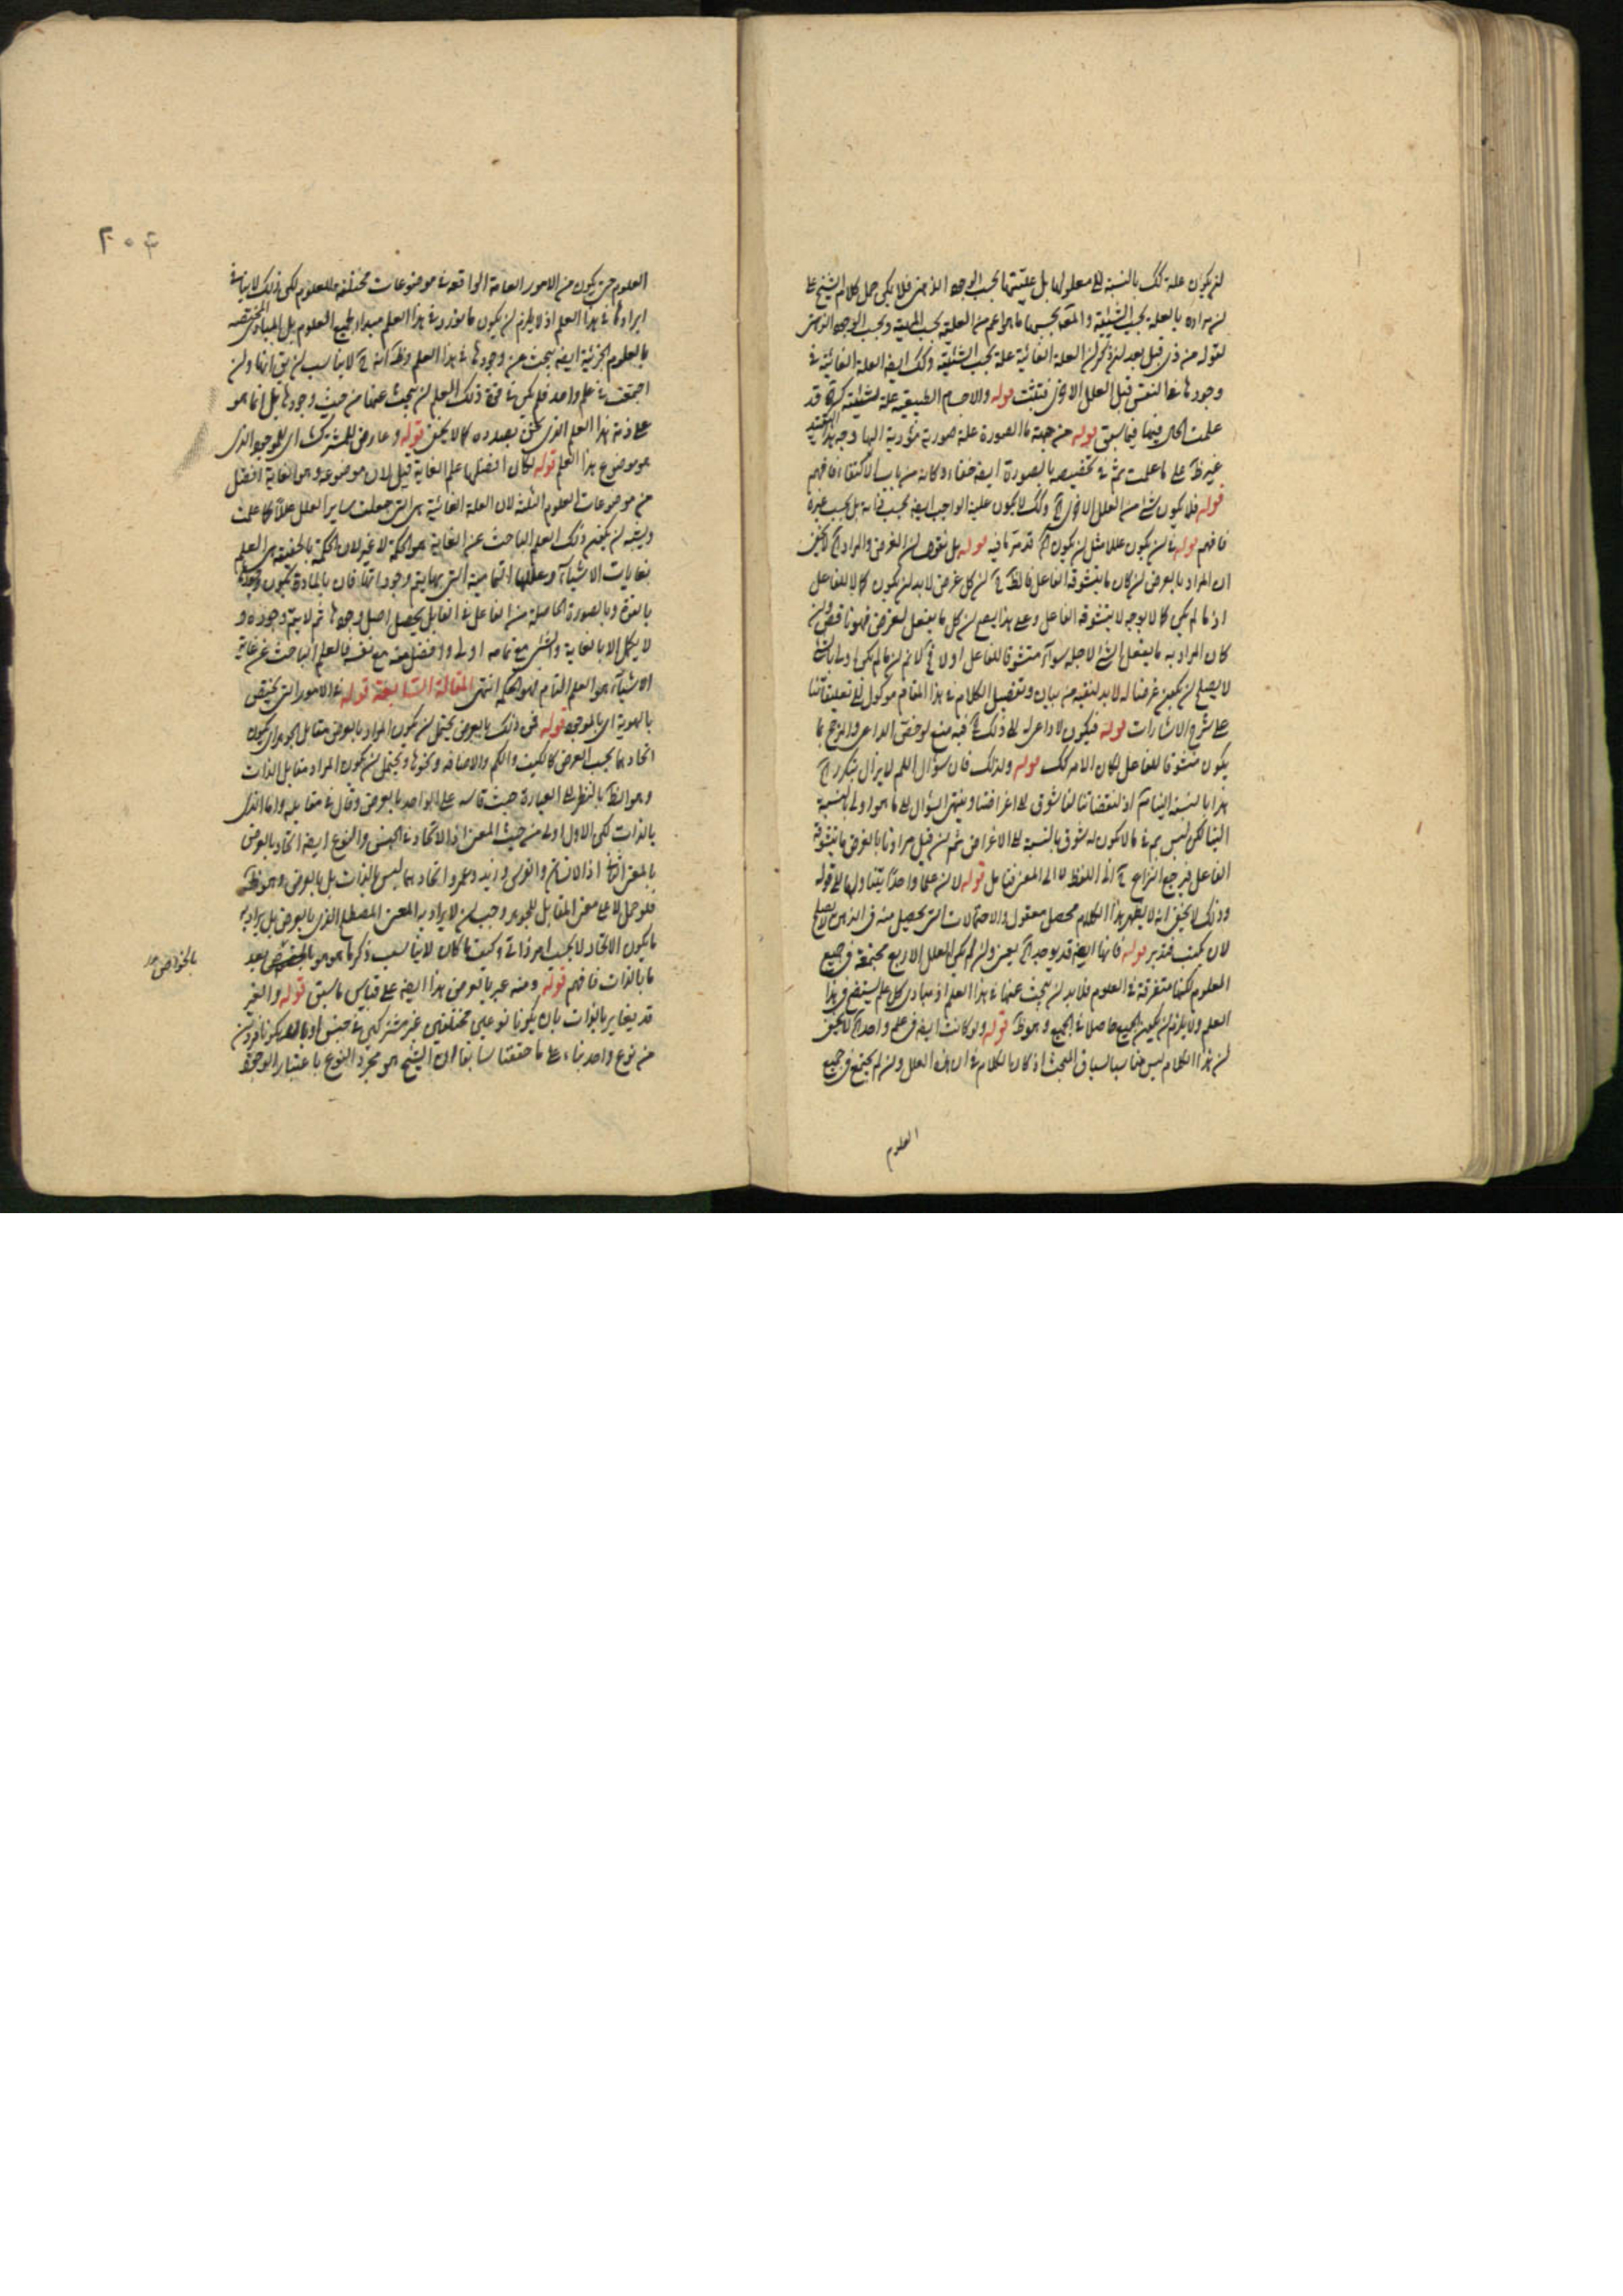 لن يكون علة كك بالنسبة الى معلولها بل عليتها بحسب الوجود الذهنى فلا يمكن حمل كلام الشيخ على
لن مراده بالعلة بحسب الشيئية ما هو اعم من العلية بحسب المهية وبحسب الوجود الذهنى
لقوله من ذى قبل بعد لن ذكر لن العلة الغائية علة بحسب الشيئية وكك ايضا العلة الغائية فى
وجودها فى النفس قبل العلل الاخرى فتثبت قوله والاجسام الطبيعية علة لشيئية كثرة قد
علمت الحال فيها فيما سبق قوله من جهة ما الصورة علة صورية مؤدية اليها وجه هذا التقييد
غير ظ على ما علمت ثم فى تخصيصه بالصورة ايضا خفاء وكانه من باب الاكتفاء فافهم
قوله فلا يكون شئ من العلل الاخرى آه وكك لا يكون علية الواجب ايضا بحسب ذاته بل بحسب غيره
فافهم قوله فا لن يكون عللا مثل لن يكون آه قد مر ما فيه قوله بل نقول لن الغرض والمراد آه لا يخفى
ان المراد بالغرض لن كان ما يتشوقه الفاعل فالظ آه لن كل غرض لا بد لن يكون كمالا للفاعل
اذ ما لم يكن كمالا بوجه لا يتشوقه الفاعل وعلى هذا يصح لن كل ما يفعل لغرض فهو ناقص ولن
كان المراد به ما يفعل الشئ لاجله سواء متشوقا للفاعل او لا فح لا نم لن ما لم يكن اولى بالفاعل
لا يصلح لن يكون غرضا له لا بد لنفيه من بيان وتفصيل الكلام فى هذا المقام موكول الى تعليقاتنا
على شرح الاشارات قوله فيكون لا داعى له الى ذلك آه فيه منع لو خص الداعى والمرجح بما
يكون متشوقا للفاعل لكان الامر كك قوله ولذلك فان سؤال اللم لا يزال يتكرر آه
هذا بالنسبة الينا تم اذ لنقصاتنا لنا شوق الى اغراضنا وينتهى السؤال الى ما هو اولى بالنسبة
الينا لكن ليس يم فى ما لا يكون له شوق بالنسبة الى الاغراض ثم لن قيل مرادنا بالغرض ما يتشوقه
الفاعل فيرجع النزاع آه الى اللفظ لا الى المعنى فتامل قوله لا لن علما واحدا يتناولها الى قوله
وذلك لا يخفى انه لا يظهر لهذا الكلام محصل معقول والاحتمالات التى يحصل منه فى الذهن لا يصلح
لان يكتب فتدبر قوله فانها ايضا قد يوجد آه يعنى ولن لم يكن العلل الاربع مجتمعة فى جميع
العلوم لكنها متفرقة فى العلوم فلا بد لن يبحث عنها فى هذا العلم اذ مبادى كل علم يستفح فى هذا
العلم ولا يلزم لن يكون الجميع حاصلا فى الجميع وهو ظ قوله ولو كانت ايضا فى علم واحد آه لا يخفى
لن هذا الكلام ليس مناسبا لسياق البحث اذ كان الكلام فى ان هذه العلل ولن لم يجتمع فى جميع
العلوم
٢٠٤
العلوم حتى يكون من الامور العامة الواقعة فى موضوعات مختلفة للعلوم لكن ذلك لا ينافى
ايرادها فى هذا العلم اذ لا يلزم لن يكون ما يورد فى هذا العلم مبداء لجميع العلوم بل المبادى المختصة
بالعلوم الجزئية ايضا يبحث عن وجودها فى هذا العلم وظ انه آه لا يناسب لن يق انها ولن
اجتمعت فى علم واحد فلم يكن فى قوة ذلك العلم لن يبحث عنها من حيث وجودها بل انما هو
على ذمة هذا العلم الذى نحن بصدده كما لا يخفى قوله وعارض للمشترك اى للموجود الذى
هو موضوع هذا العلم قوله لكان افضلها علم الغاية قيل لان موضوعه وهو الغاية افضل
من موضوعات العلوم الثلثة لان العلة الغائية هى التى جعلت ساير العلل عللا كما علمت
ويشبه لن يكون ذلك العلم الباحث عن الغاية هو الحكمة لا غير لان الحكمة بالحقيقة هى العلم
بغايات الاشياء وعللها التمامية التى بها يتم وجوداتها فان بالمادة يكون وجودها
بالقوة وبالصورة الحاصلة من الفاعل فى القابل يحصل اصل وجودها ثم لا يتم وجوده و
لا يكمل الا بالغاية والشئ مع تمامه اولى وافضل منه مع نفسه فالعلم الباحث عن غاية
الاشياء هو العلم التام فهو الحكمة انتهى المقالة السابعة قوله فى الامور التى تختص
بالهوية اى بالموجود قوله فى ذلك بالعرض يحتمل لن يكون المراد بالعرض مقابل الجوهر اى يكون
اتحادهما بحسب العرض كالكيف والكم والاضافة ونحوها ويحتمل لن يكون المراد مقابل الذات
وهو الظ بالنظر الى العبارة حيث قاسه على الواحد بالعرض وقال فى مقابله واما الذى
بالذات لكن الاول اولى من حيث المعنى اذ الاتحاد فى الجنس والنوع ايضا اتحاد بالعرض
بالمعنى الثانى اذ الانسان والفرس وزيد وعمرو اتحادهما ليس بالذات بل بالعرض وهو ظ
فلو حمل لا على معنى المقابل للجوهر وجب لن لا يراد به المعنى المصطلح الذى بالعرض بل يراد به
ما يكون الاتحاد لا بحسب امر ذاتى وكيف ما كان لا يناسب ذكرها هو هو بعد
بالخواص صح
ما بالذات فافهم قوله ومنه غير بالعرض هذا ايضا على قياس ما سبق قوله والغير
قد يغاير بالذات بان يكونا نوعين مختلفين غير مشتركين فى جنس او يكونا فردين
من نوع واحد بناء على ما حققنا سابقا ان الشيخ هو مجرد النوع باعتبار الوجود